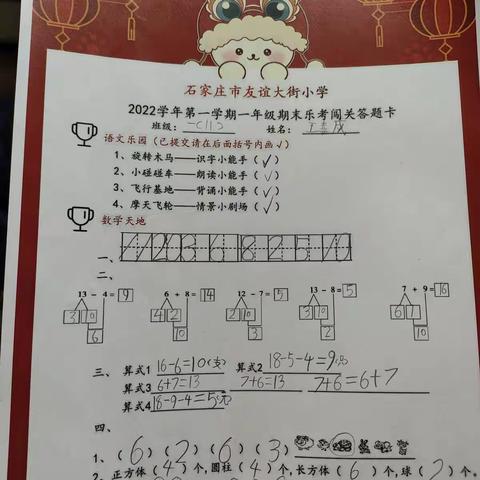 石家庄市友谊大街小学
2022学年第一学期一年级期末乐考闯关答题卡
班级： 一(11) 姓名：
语文乐园（已提交请在后面括号内画√）
1、旋转木马——识字小能手（√）
2、小碰碰车——朗读小能手（√）
3、飞行基地——背诵小能手（√）
4、摩天飞轮——情景小剧场（√）
数学天地
一、
二、
13 - 4 = 9 6 + 8 = 14 12 - 7 = 5 13 - 8 = 5 7 + 9 = 16
3 10 4 2 2 10 3 10 6 1
6 10 3 2 10
三、 算式1 16-6=10(支) 算式2 18-5-4=9(只)
算式3 6+7=13 7+6=13 7+6=6+7
算式4 18-9-4=5(元)
四、
1、（6）（2）（6）（3）
2、正方体（4）个，圆柱（4）个，长方体（6）个，球（2）个。